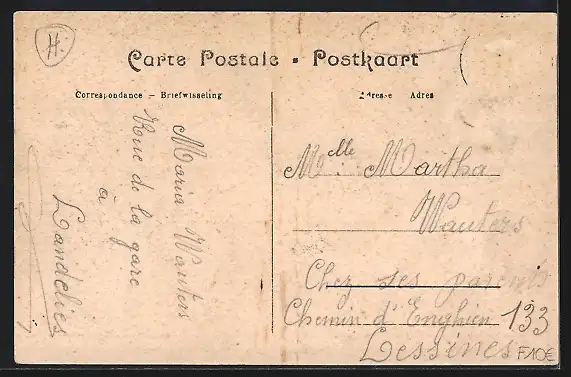 H.
Carte Postale - Postkaart
Correspondance – Briefwisseling
Adresse Adres
Maria Wauters
Rue de la gare
à
Landelies
Mlle Martha
Wauters
Chez ses parents
Chemin d'Enghien 133
Lessines
F10€